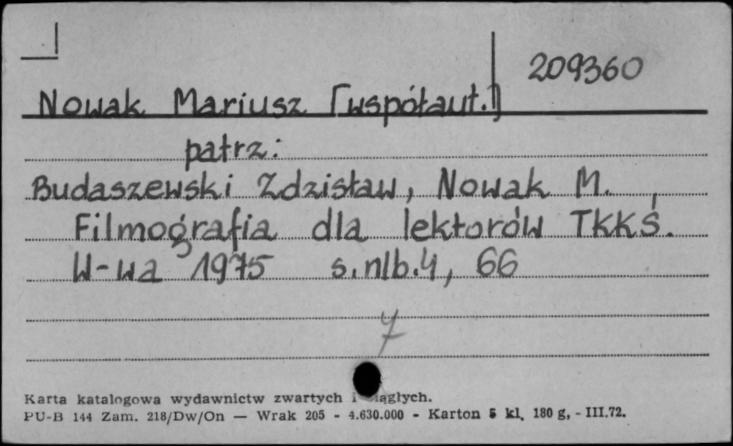 209360
Nowak Mariusz [współaut.]
patrz:
Budaszewski Zdzisław, Nowak M.
Filmografia dla lektorów TKKŚ.
W-wa 1975 s.nlb.4, 66
7
Karta katalogowa wydawnictw zwartych i ciągłych.
PU-B 144 Zam. 218/Dw/On — Wrak 205 - 4.630.000 - Karton 5 kl. 180 g, - III.72.